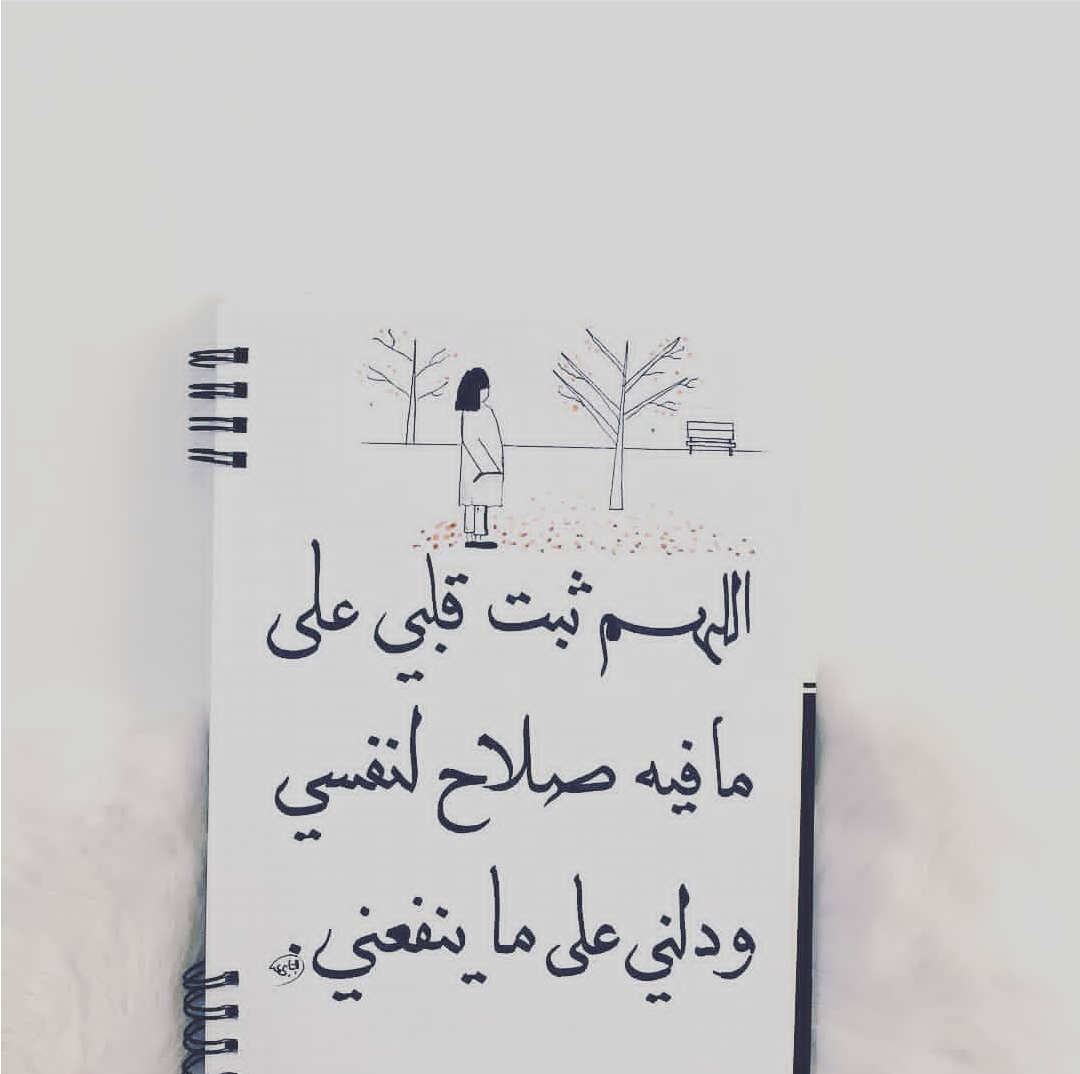 اللهم ثبت قلبي على
ما فيه صلاح لنفسي
ودلني على ما ينفعني.